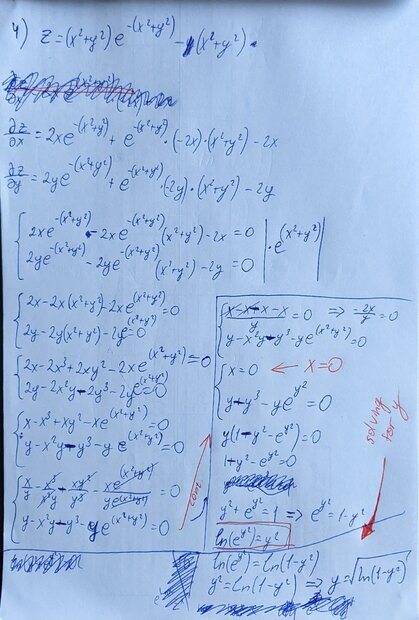 4) z=(x²+y²)e^-(x²+y²) - (x²+y²)
∂z/∂x = 2xe^-(x²+y²) + e^-(x²+y²)·(-2x)·(x²+y²) - 2x
∂z/∂y = 2ye^-(x²+y²) + e^-(x²+y²)·(-2y)·(x²+y²) - 2y
{ 2xe^-(x²+y²) - 2xe^-(x²+y²)(x²+y²) - 2x = 0 | ·e^(x²+y²) |
2ye^-(x²+y²) - 2ye^-(x²+y²)(x²+y²) - 2y = 0
{ 2x-2x(x²+y²)-2xe^(x²+y²)=0
2y-2y(x²+y²)-2ye^(x²+y²)=0
{ 2x-2x³+2xy²-2xe^(x²+y²)=0
2y-2x²y-2y³-2ye^(x²+y²)=0
{ x-x³+xy²-xe^(x²+y²)=0
y-x²y-y³-ye^(x²+y²)=0
{ x/y - x³/x²y + xy²/y³ - xe^(x²+y²)/ye^(x²+y²) = 0
y-x²y-y³-ye^(x²+y²)=0
cont
{ x-x-x-x/y = 0 ⇒ -2x/y = 0
y-x²y-y³-ye^(x²+y²)=0
{ x=0 ← x=0
y+y³-ye^y²=0
y(1+y²-e^y²)=0
1+y²-e^y²=0
y²+e^y²=1 ⇒ e^y²=1-y²
ln(e^y²)=y²
ln(e^y²)=ln(1-y²)
y²=ln(1-y²) ⇒ y=√ln(1-y²)
solving for y